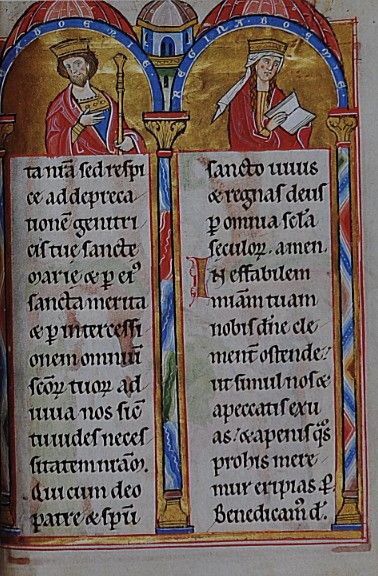 BOEMIE
REGINA BOEMIE
taniā sed respi
ce ad depreca
tionē genitri
cis tuę sancte
marię & ꝑ ei᾿
sancta merita
& ꝑ intercessi
onem omniū
sc̄oꝝ tuoꝝ ad
iuua nos sic̄
tu uides neces
sitatem nr̄am.
Qui cum deo
patre & spū
sancto uiuis
& regnas deus
ꝑ omnia sc̄la
seculoꝝ. amen.
Ineffabilem
miām tuam
nobis dn̄e cle
ment̄ ostende:
ut simul nos &
a peccatis exu
as: & a penis q̄s
pro his mere
mur eripias. ꝑ.
Benedicam᾿ d.